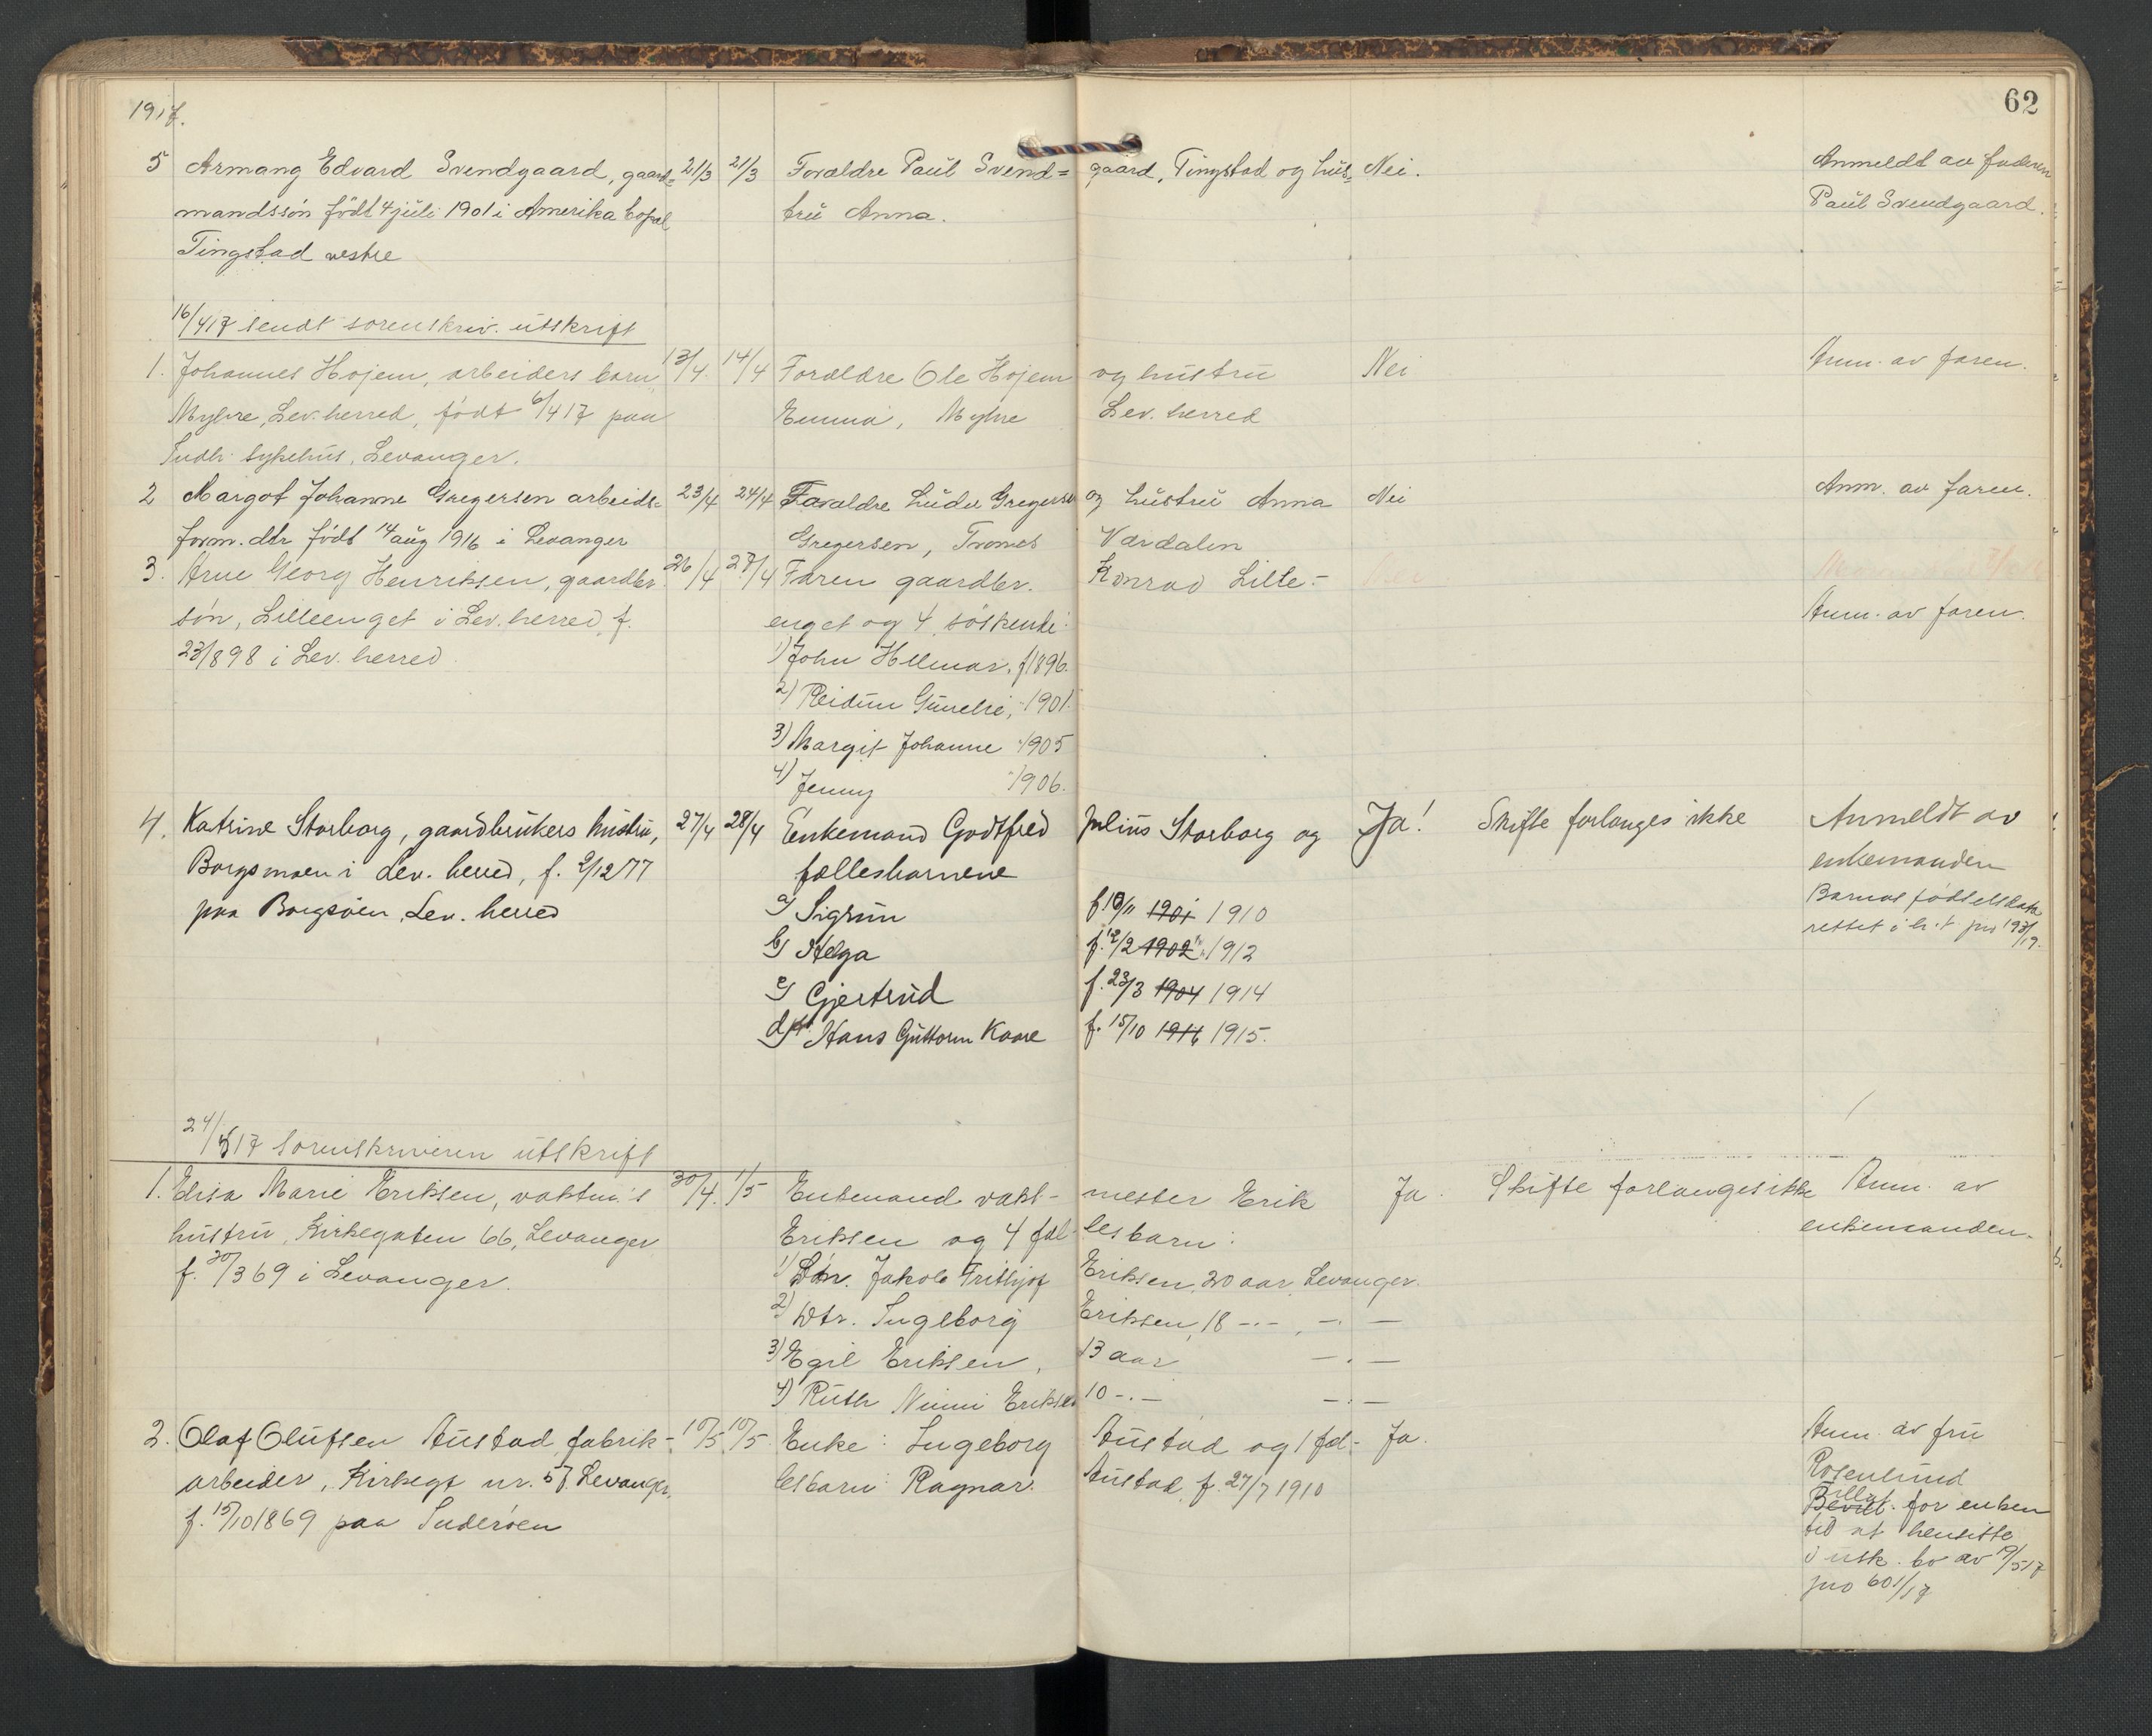 1917.
62
5 Armang Edvard Svendgaard, gaard= 21/3 21/3 Forældre Paul Svend= gaard, Tingstad og hus= Nei. Anmeldt av faderen
mandssøn født 4 juli 1901 i Amerika bopæl tru Anna. Paul Svendgaard.
Tingstad vestre
16/4 17 sendt sorenskriv. utskrift
1. Johannes Hojem, arbeiders barn, 13/4 14/4 Forældre Ole Hojem og hustru Nei Anm. av faren.
Myhre, Lev. herred, født 6/4 17 paa Emma, Myhre Lev. herred
Indh. sykehus, Levanger.
2 Margot Johanne Gregersen arbeids= 23/4 24/4 Forældre Ludv Gregersen og hustru Anna Nei Anm. av faren.
form. dtr født 14 aug 1916 i Levanger Gregersen, Trones Værdalen
3. Arne Georg Henriksen, gaardbr. 26/4 27/4 Faren gaardbr. Konrad Lille-
søn, Lilleenget i Lev. herred, f. enget og 4 søskende: Anm. av faren.
23/8 98 i Lev. herred. 1) John Hilmar, f 1896.
2) Reidun -1901.
3) Margit Johanne -1905
4) Jenny -1906.
4. Katrine Storborg, gaardbrukers hustru, 27/4 28/4 Enkemand Godtfred Julius Storborg og Ja! Skifte forlanges ikke Anmeldt av
Borgsmoen i Lev. herred, f. 2/12 77 fællesbarnene enkemanden
paa Borgsøen, Lev. herred a) Sigrun f. 18/11 1901 1910 Barnas fødselsdata
b) Helga f. 12/2 1902 1912 rettet i h.t. jnr 193/19.
c) Gjertrud f. 23/3 1904 1914
d) Hans Guttorm Kaare f. 15/10 1916 1915.
24/5 17 sorenskriveren utskrift
1. Elisa Marie Eriksen, vaktm's 30/4. 1/5 Enkemand vakt- mester Erik Ja. Skifte forlanges ikke Anm. av
hustru, Kirkegaten 66, Levanger Eriksen og 4 fæl- lesbarn: enkemanden.
f. 30/3 69 i Levanger. 1) Søn. Jakob Frithjof Eriksen, 20 aar, Levanger.
2) Dtr. Ingeborg Eriksen, 18 -.-, -.-
3) Egil Eriksen, 13 aar -.-
4) Ruth Ninni Eriksen 10 -.- -.-
2. Olaf Olufsen Austad, fabrik- 10/5 10/5 Enke: Ingeborg Austad og 1 fæl- Ja. Anm. av fru
arbeider, Kirkegt nr. 57. Levanger. lesbarn: Ragnar. Austad, f. 27/7 1910 Rosenlund
f. 15/10 1869 paa Inderøen Bevill. for enken
til at hensitte
i usk. bo av 19/5 17
jno 601/17